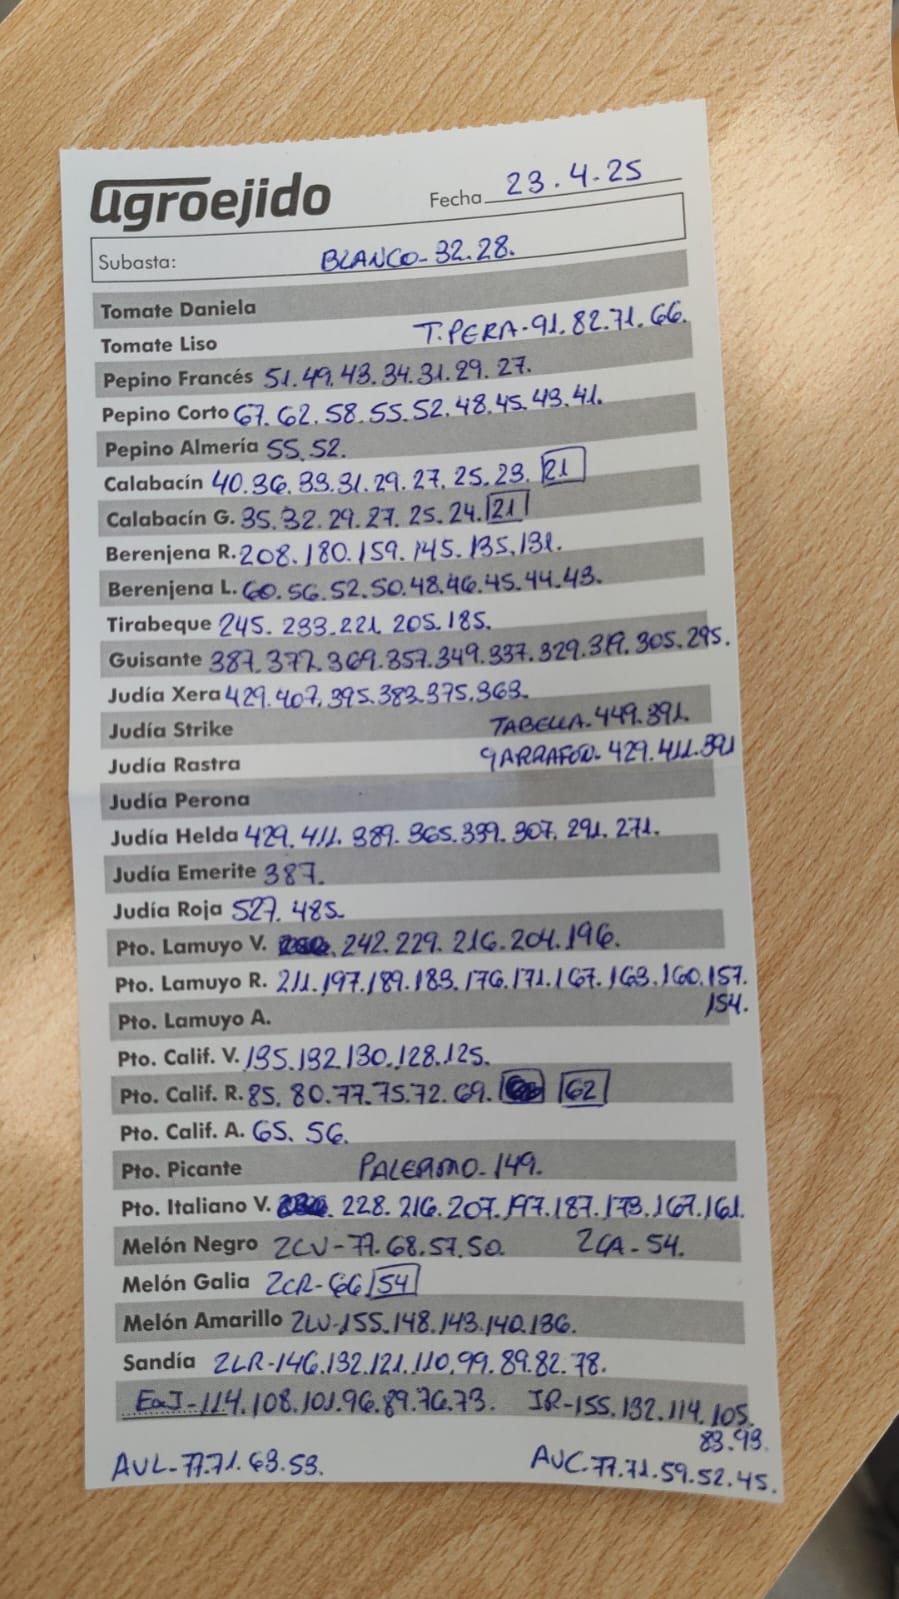 agroejido Fecha 23.4.25
Subasta: BLANCO-32.28.
Tomate Daniela
Tomate Liso T.PERA-91.82.71.66.
Pepino Francés 51.49.43.34.31.29.27.
Pepino Corto 67.62.58.55.52.48.45.43.41.
Pepino Almería 55.52.
Calabacín 40.36.33.31.29.27.25.23. 21
Calabacín G. 35.32.29.27.25.24. 21
Berenjena R. 208.180.159.145.135.131.
Berenjena L. 60.56.52.50.48.46.45.44.43.
Tirabeque 245.233.221.205.185.
Guisante 387.377.369.357.349.337.329.319.305.295.
Judía Xera 429.407.395.383.375.363.
Judía Strike TABELLA.449.391.
Judía Rastra GARRAFON-429.411.391
Judía Perona
Judía Helda 429.411.389.365.339.307.291.271.
Judía Emerite 387.
Judía Roja 527.485.
Pto. Lamuyo V. 242.229.216.204.196.
Pto. Lamuyo R. 211.197.189.183.176.171.167.163.160.157.
154.
Pto. Lamuyo A.
Pto. Calif. V. 135.132.130.128.125.
Pto. Calif. R. 85.80.77.75.72.69. 62
Pto. Calif. A. 65.56.
Pto. Picante PALERMO-149.
Pto. Italiano V. 228.216.207.197.187.173.167.161.
Melón Negro 2CV-77.68.57.50. 2CA-54.
Melón Galia 2CR-66 54
Melón Amarillo 2LV-155.148.143.140.136.
Sandía 2LR-146.132.121.110.99.89.82.78.
114.108.101.96.89.76.73. IR-155.132.114.105.
83.93.
AVL-77.71.63.53. AVC.77.71.59.52.45.